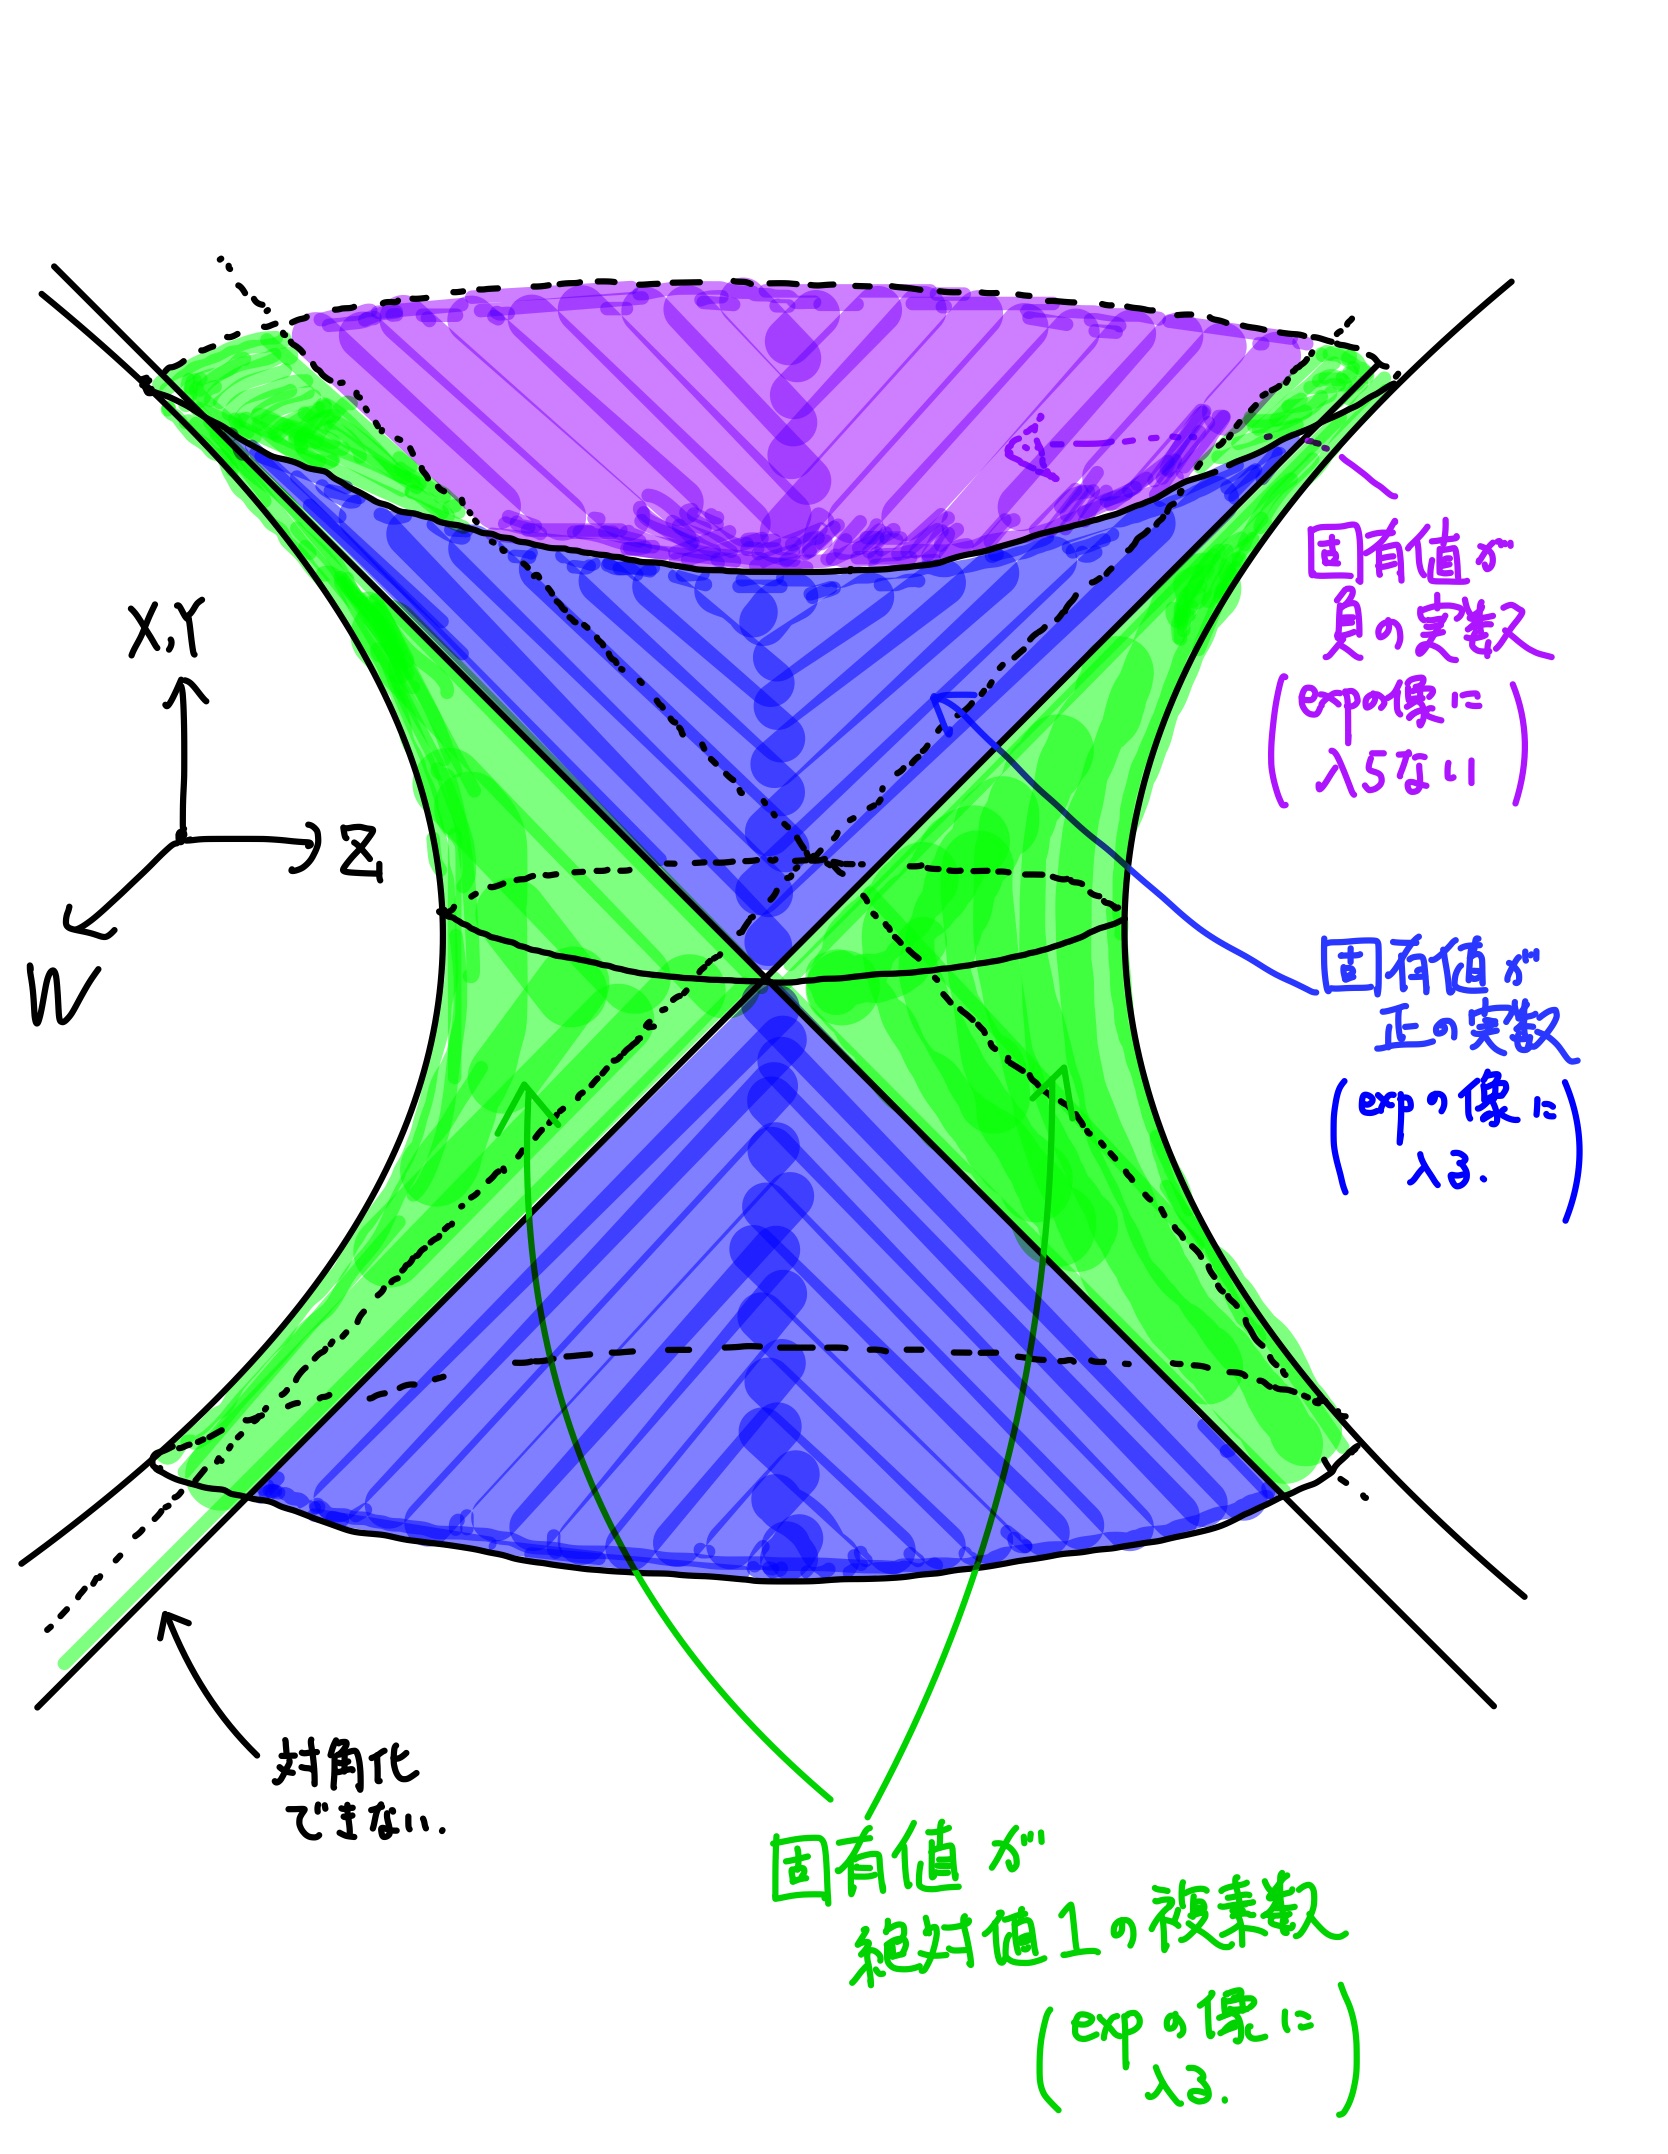 X,Y
Z
W
固有値が
負の実数
(expの像に
入らない)
固有値が
正の実数
(expの像に
入る.)
対角化
できない.
固有値が
絶対値1の複素数
(expの像に
入る.)